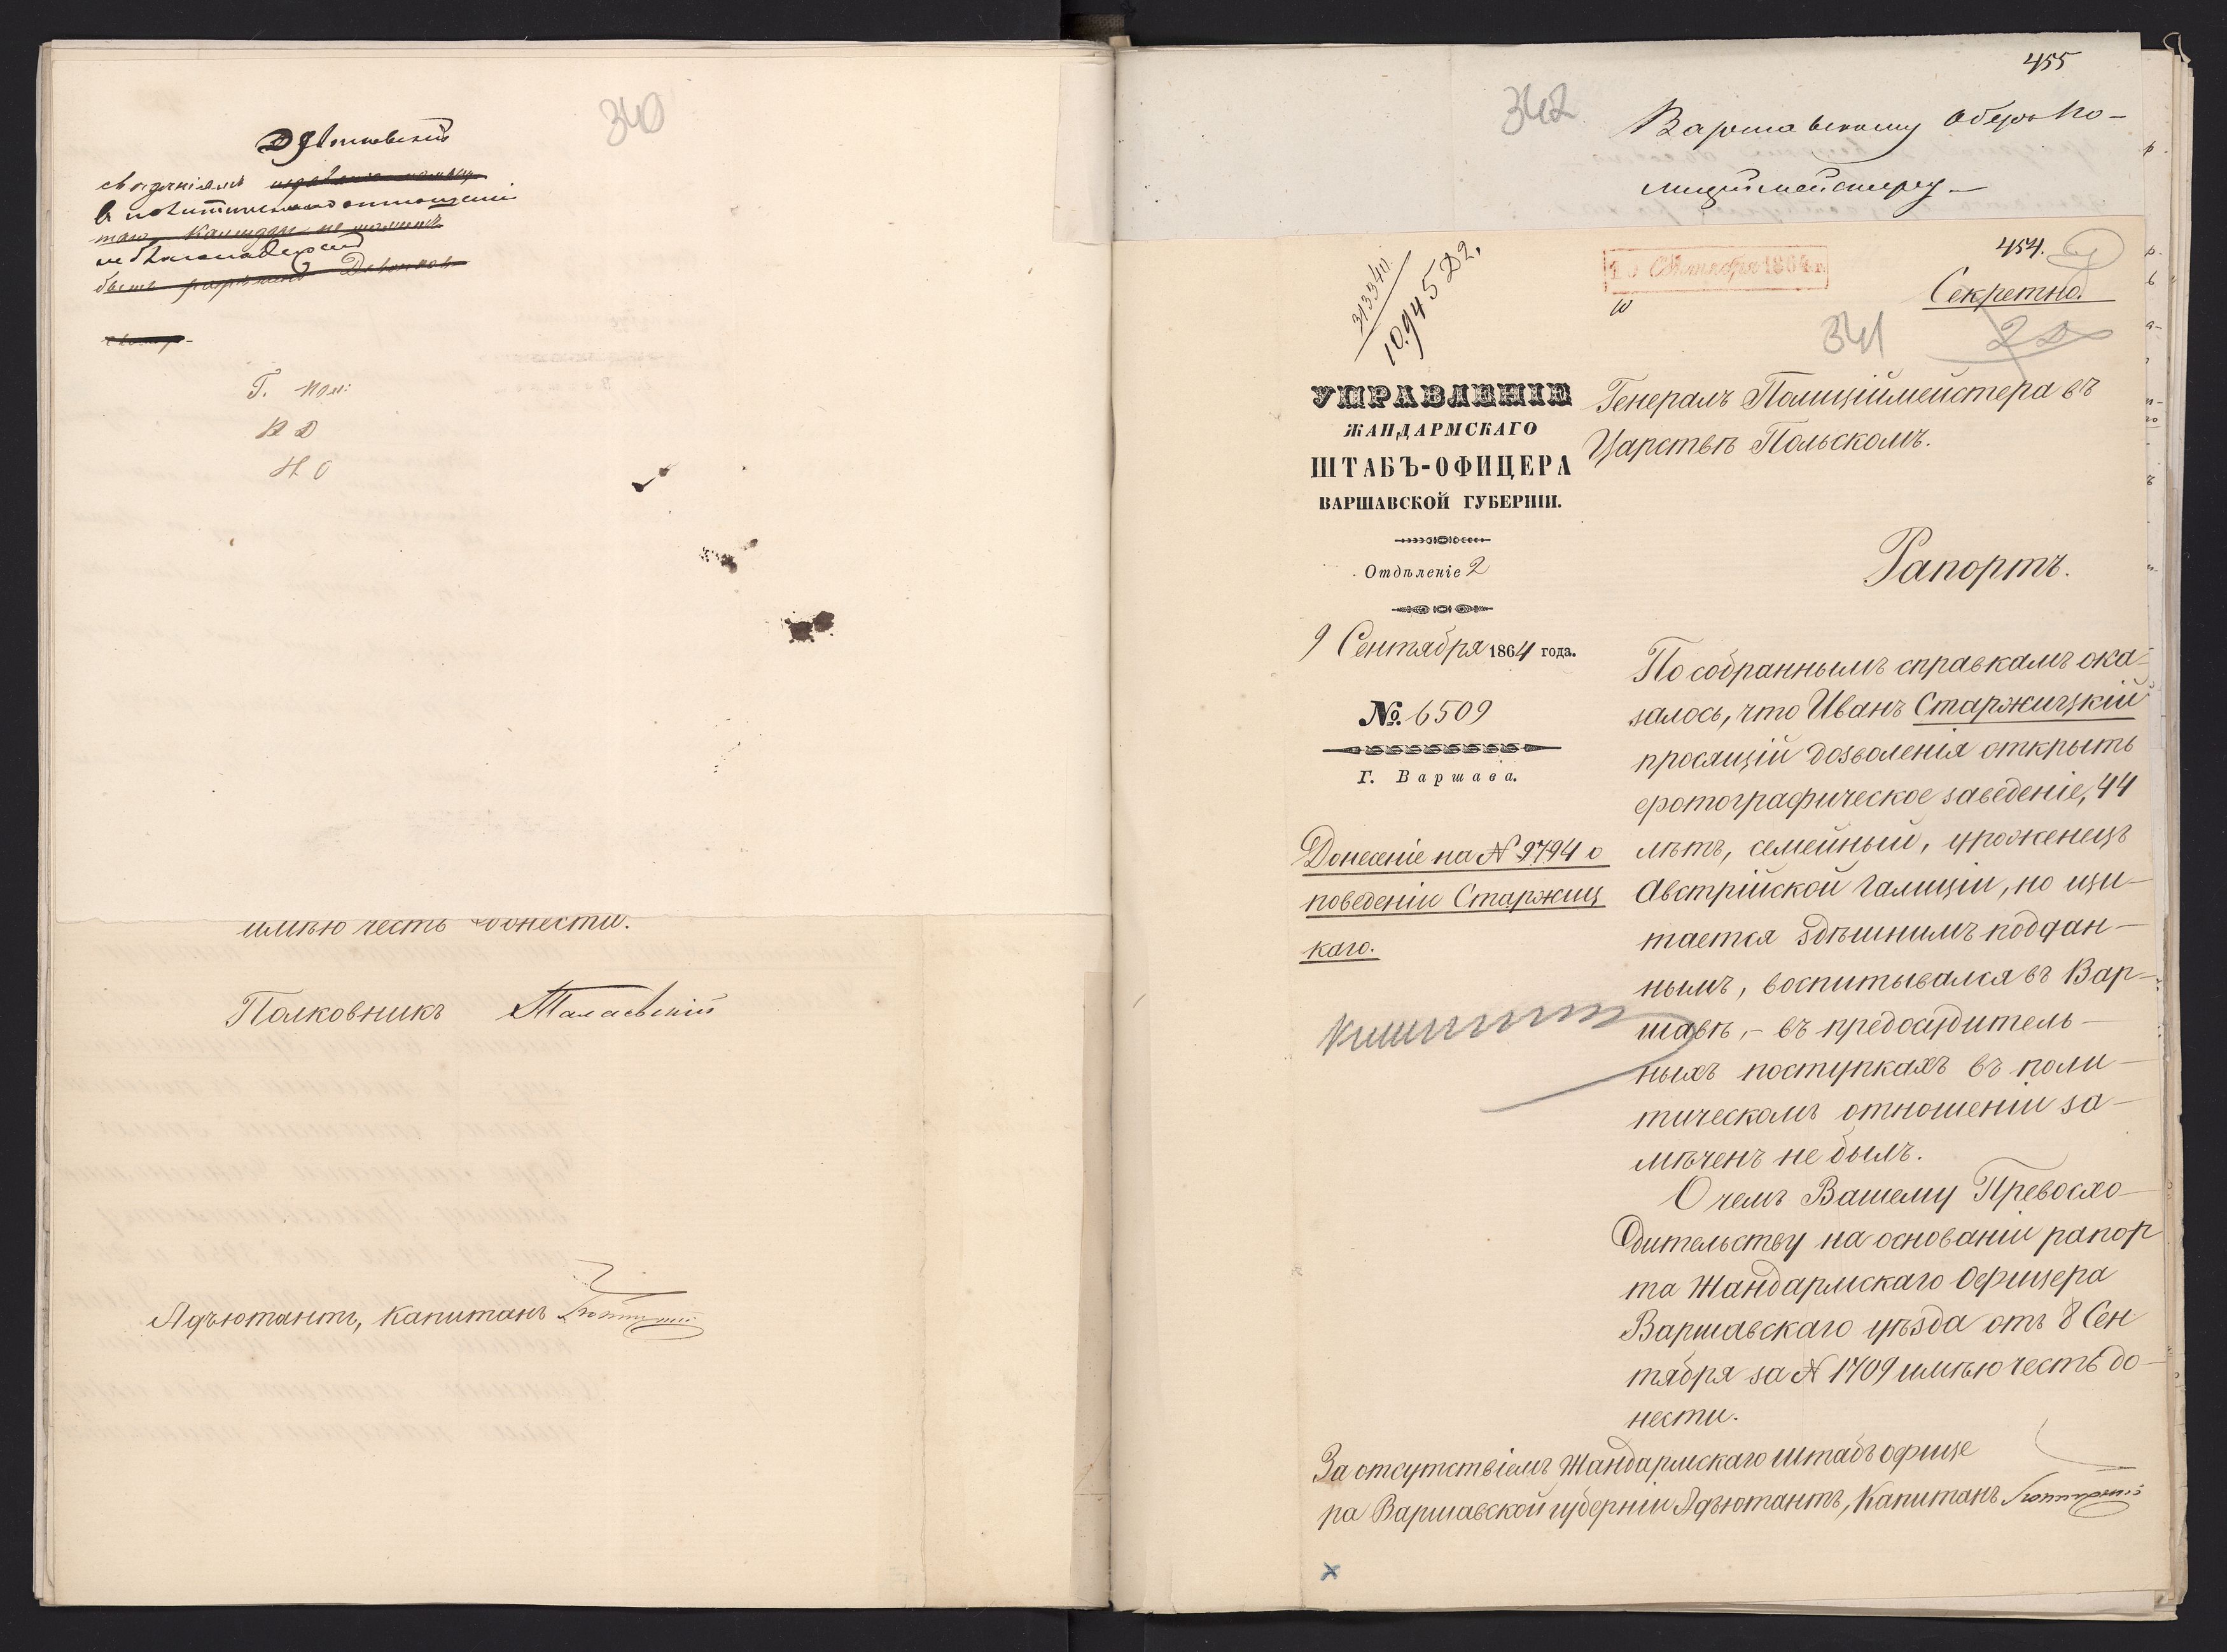 340
свѣдѣніямъ
въ политическомъ отношеніи
не благонадежен
Г. Пол:
имѣю честь донести.
Полковникъ
Адъютантъ, Капитанъ
455
342
Варшавскому Оберъ По-
лиціймейстеру
454.
10945 Д2.
Сентября 1864 г.
Секретно.
341
УПРАВЛЕНІЕ
ЖАНДАРМСКАГО
ШТАБЪ-ОФИЦЕРА
ВАРШАВСКОЙ ГУБЕРНІИ.
Отдѣленіе 2
9 Сентября 1864 года.
№ 6509
Г. Варшава.
Донесеніе на № 9794 о
поведеніи Старжиц
каго.
Генералъ Полиціймейстера въ
Царствѣ Польскомъ.
Рапортъ.
По собраннымъ справкамъ ока-
залось, что Иванъ Старжицкій
просящій дозволенія открыть
фотографическое заведеніе, 44
лѣтъ, семейный, уроженецъ
Австрійской Галиціи, но щи-
тается здѣшнимъ поддан-
нымъ, воспитывался въ Вар-
шавѣ, - въ предосудитель-
ныхъ поступкахъ въ поли-
тическомъ отношеніи за-
мѣченъ не былъ.
О чемъ Вашему Превосхо-
дительству на основаніи рапор
та Жандармскаго Офицера
Варшавскаго уѣзда отъ 8 Сен
тября за № 1709 имѣю честь до-
нести.
За отсутствіемъ Жандармскаго штабъ офице
ра Варшавской губерніи Адъютантъ, Капитанъ